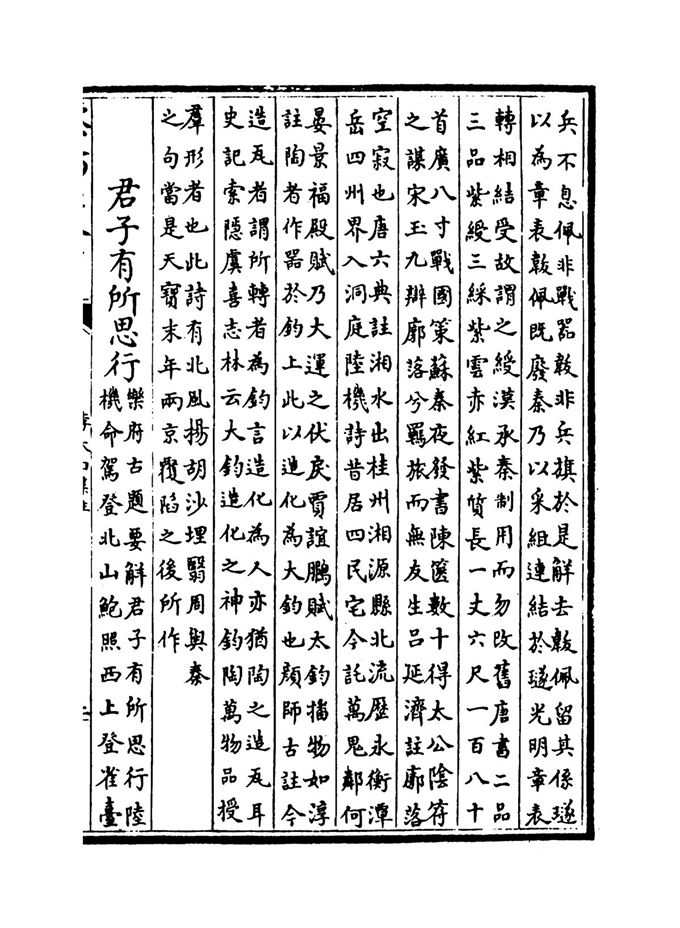 兵不息佩非戰器韍非兵旗於是解去韍佩留其係璲
以為章表韍佩既廢秦乃以采組連結於璲光明章表
轉相結受故謂之綬漢承秦制用而勿改舊唐書二品
三品紫綬三綵紫雲赤紅紫質長一丈六尺一百八十
首廣八寸戰國策蘇秦夜發書陳篋數十得太公陰符
之謀宋玉九辯廓落兮羈旅而無友生呂延濟註廓落
空寂也唐六典註湘水出桂州湘源縣北流歴永衡潭
岳四州界入洞庭陸機詩昔居四民宅今託萬鬼鄰何
晏景福殿賦乃大運之伏戾賈誼鵩賦太鈞播物如淳
註陶者作器於鈞上此以造化為大鈞也顔師古註今
造瓦者謂所轉者為鈞言造化為人亦猶陶之造瓦耳
史記索隱虞喜志林云大鈞造化之神鈞陶萬物品授
羣形者也此詩有北風揚胡沙埋翳周與秦
之句當是天寶末年兩京覆陷之後所作
君子有所思行
樂府古題要解君子有所思行陸
機命駕登北山鮑照西上登雀臺